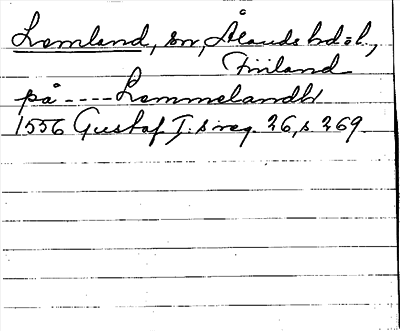 Lemland, sn, Ålands hd o l.,
Finland
på ---- Lemmelandh
1556 Gustaf I:s reg. 26, s 269